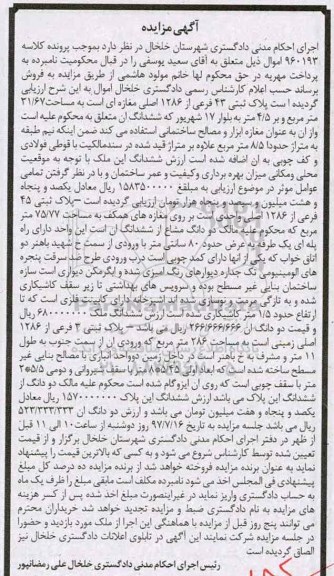 آگهی مزایده
اجرای احکام مدنی دادگستری شهرستان خلخال در نظر دارد بموجب پرونده کلاسه
۹۶۰۱۹۳ اموال ذیل متعلق به آقای سعید یوسفی را در قبال محکومیت نامبرده به
پرداخت مهریه در حق محکوم لها خانم مولود هاشمی از طریق مزایده به فروش
برساند حسب اعلام کارشناس رسمی دادگستری خلخال اموال به این شرح ارزیابی
گردیده است پلاک ثبتی ۴۳ فرعی از ۱۲۸۶ اصلی مغازه ای است به مساحت ۳۱/۶۷
متر مربع و بر ۴/۵ متر به بلوار ۱۷ شهریور که ششدانگ آن متعلق به محکوم علیه است
واز ان به عنوان مغازه ابزار و مصالح ساختمانی استفاده می کند ضمن اینکه نیم طبقه
به متراژ حدودا ۸/۵ متر مربع علاوه بر متراژ قید شده در سندمالکیت با قوطی فولادی
و کف چوبی به ان اضافه شده است ارزش ششدانگ این ملک با توجه به موقعیت
محلی ومکانی میزان بهره برداری وکیفیت و عمر ساختمان و با در نظر گرفتن تمامی
عوامل موثر در موضوع ارزیابی به مبلغ ۱۵۸۳۵۰۰۰۰۰ ریال معادل یکصد و پنجاه
و هشت میلیون و سیصد و پنجاه هزار تومان ارزیابی گردیده است –پلاک ثبتی ۴۵
فرعی از ۱۲۸۶ اصلی واحدی است بر روی مغازه های همکف به مساحت ۷۵/۷۷ متر
مربع که محکوم علیه مالک دو دانگ مشاع از ششدانگ ان است این واحد دارای راه
پله ای یک طرفه به عرض حدود ۸۰ سانتی متر با ورودی از سمت خ شهید باهنر دو
اتاق خواب که یکی از آنها دارای کمد چوبی است درب ورودی طرح ضد سرقت پنجره
های الومینیومی تک جداره دیوارهای رنگ امیزی شده و ایزگرمکن دیواری است سازه
ساختمان بنایی غیر مسطح بوده و سرویس های بهداشتی تا زیر سقف کاشیکاری
شده و به تازگی مرمت و نوسازی شده اند اشپزخانه دارای کابینت فلزی است که تا
ارتفاع حدود ۱/۵ متر کاشیکاری شده است ارزش ششدانگ ملک ۶۸۰۰۰۰۰۰۰ ریال
و قیمت دو دانگ ان ۲۶۶/۶۶۶/۶۶۶ ریال می باشد – پلاک ثبتی ۳ فرعی از ۱۲۸۶
اصلی زمینی است به مساحت ۲۸۶ متر مربع که ورودی ان از سمت جنوب به طول
۱۱ متر و مشرف به خ باهنر است در داخل زمین دوواحد انباری با مصالح بنایی غیر
سطح ساخته شده است که
متر با سقف چوبی است که روی ان ایزوگام شده است محکوم علیه مالک دو دانگ از
ششدانگ این پلاک می باشد ارزش ششدانگ این پلاک ۱۵۷۰۰۰۰۰۰۰ ریال معادل
یکصد و پنجاه و هفت میلیون تومان می باشد و ارزش دو دانگ ان ۵۲۳/۳۳۳/۳۳۳
ریال می باشد جلسه مزایده به تاریخ ۹۷/۷/۱۶ روز دوشنبه از ساعت ۱۰ الی ۱۱ قبل
از ظهر در دفتر اجرای احکام مدنی دادگستری شهرستان خلخال برگزار و از قیمت
تعیین شده توسط کارشناس شروع می شود و به کسی که بالاترین قیمت را پیشنهاد
نماید به عنوان برنده مزایده فروخته خواهد شد از برنده مزایده ده درصد کل مبلغ
پیشنهادی فی المجلس اخذ می شود نامبرده مکلف است مابقی مبلغ را ظرف یک ماه
به حساب دادگستری واریز نماید در غیراینصورت مبلغ اخذ شده پس از کسر هزینه
های مزایده به نام دادگستری ضبط و مزایده تجدید خواهد شد خریداران محترم
می توانند پنج روز قبل از مزایده با هماهنگی این اجرا از ملک مورد بازدید و حضورا
در جلسه مزایده شرکت نمایند این آگهی در تابلوی اعلانات دادگستری خلخال نیز
الصاق گردیده است
رئیس اجرای احکام مدنی دادگستری خلخال علی رمضانپور